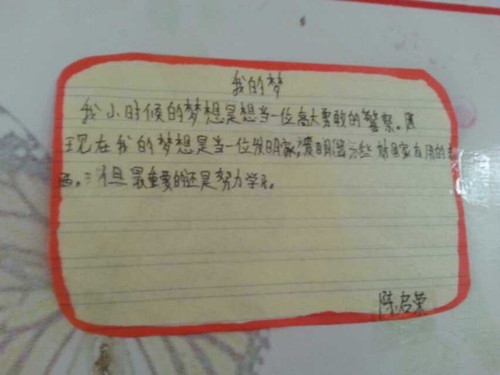 我的梦
我小时候的梦想是想当一位高大勇敢的警察。
现在我的梦想是当一位发明家,发明出一些对国家有用的东
西。但最重要的还是努力学习。
陈启荣